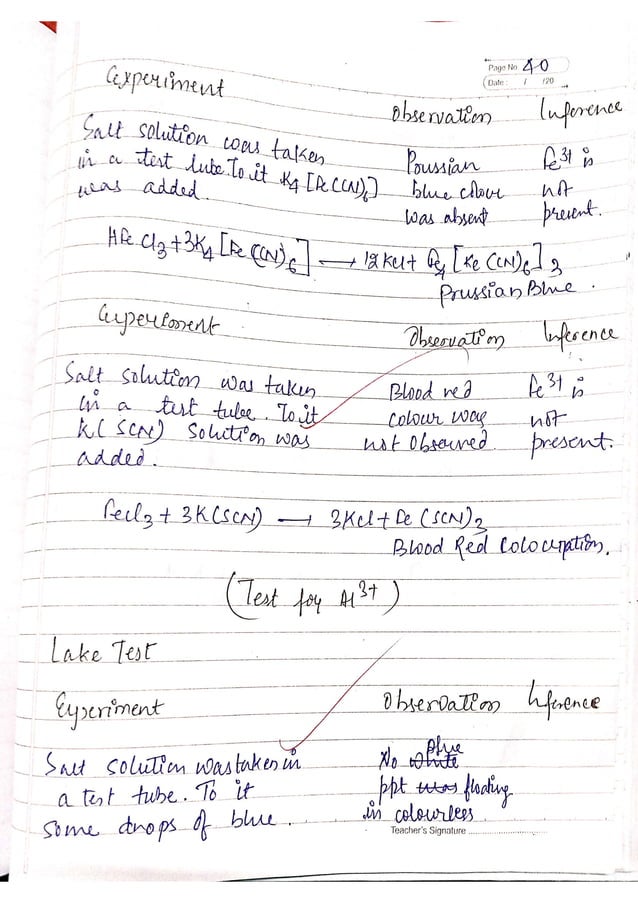 Page No. 40
Date : / /20
Experiment Observation Inference
Salt solution was taken
in a test tube. To it K4 [Fe(CN)6] Poussian Fe3+ is
was added. blue colour not
was absent present.
4Fe Cl3 + 3K4 [Fe (CN)6] → 12 KCl + Fe4 [Fe (CN)6] 3
Prussian Blue.
Experiment Observation Inference
Salt solution was taken Blood red Fe3+ is
in a test tube. To it colour was not
K(SCN) solution was not observed present.
added.
FeCl3 + 3K(SCN) → 3KCl + Fe (SCN)3
Blood Red Colouration.
(Test for Al3+)
Lake Test
Experiment Observation Inference
Salt solution was taken in No white blue
a test tube. To it ppt was floating
some drops of blue. in colourless
Teacher's Signature